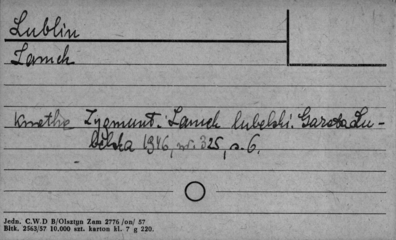 Lublin
Zamek
Knothe Zygmunt: Zamek lubelski. Gazeta Lu-
belska 1946, nr. 325, s. 6.
Jedn. C.W.D B/Olsztyn Zam 2776 /on/ 57
Bltk. 2563/57 10.000 szt. karton kl. 7 g 220.